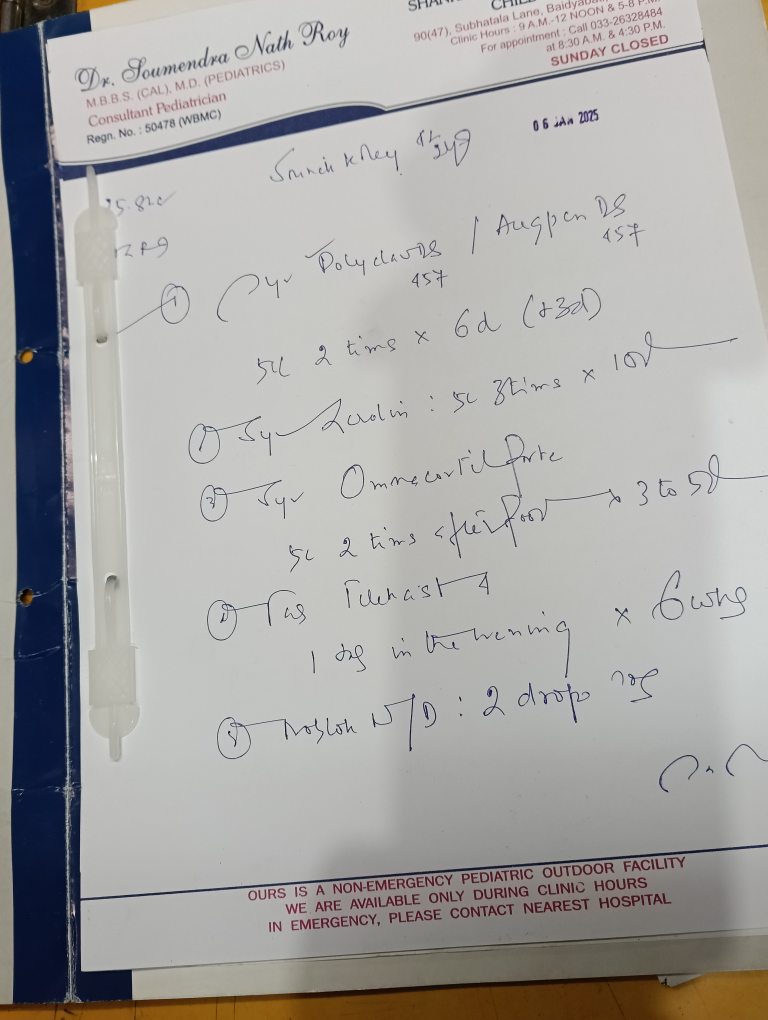 Dr. Soumendra Nath Roy
M.B.B.S. (CAL), M.D. (PEDIATRICS)
Consultant Pediatrician
Regn. No. : 50478 (WBMC)
90(47), Subhatala Lane, Baidyaba
Clinic Hours : 9 A.M.-12 NOON & 5-8 P.M.
For appointment : Call 033-26328484
at 8:30 A.M. & 4:30 P.M.
SUNDAY CLOSED
06 JAN 2025
① Syr Polyclav DS / Augpen DS
457 457
5c 2 times x 6d (+3d)
Syr : 5c 3 times x 10d
③ Syr Omnacortil Forte
5c 2 times after food x 3 to 5d
Tab 4
1 tab in the evening x 6 wks
⑤ N/D : 2 drops
OURS IS A NON-EMERGENCY PEDIATRIC OUTDOOR FACILITY
WE ARE AVAILABLE ONLY DURING CLINIC HOURS
IN EMERGENCY, PLEASE CONTACT NEAREST HOSPITAL